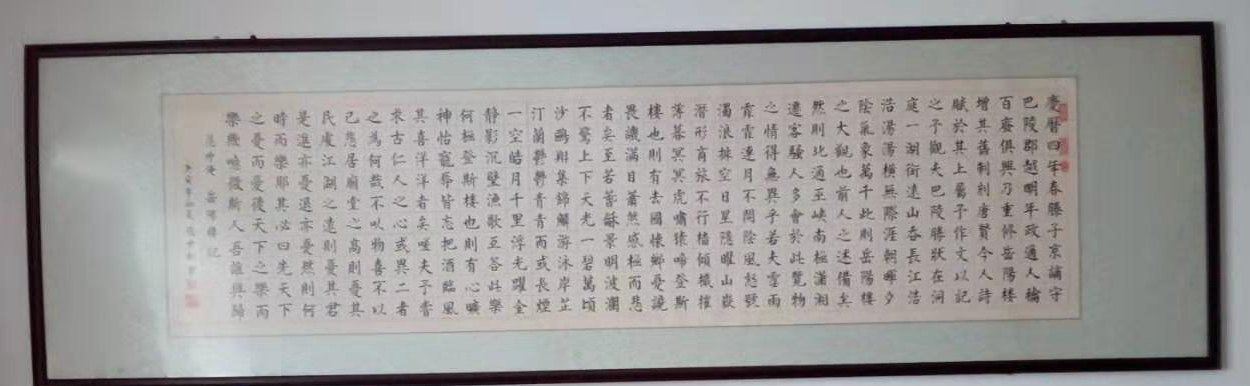 慶曆四年春滕子京謫守
巴陵郡越明年政通人龢
百廢俱興乃重修岳陽樓
增其舊制刻唐賢今人詩
賦於其上屬予作文以記
之予觀夫巴陵勝狀在洞
庭一湖銜遠山吞長江浩
浩湯湯橫無際涯朝暉夕
陰氣象萬千此則岳陽樓
之大觀也前人之述備矣
然則北通巫峽南極瀟湘
遷客騷人多會於此覽物
之情得無異乎若夫霪雨
霏霏連月不開陰風怒號
濁浪排空日星隱曜山嶽
潛形商旅不行檣傾檝摧
薄暮冥冥虎嘯猿啼登斯
樓也則有去國懷鄉憂讒
畏譏滿目蕭然感極而悲
者矣至若春龢景明波瀾
不驚上下天光一碧萬頃
沙鷗翔集錦鱗游泳岸芷
汀蘭鬱鬱青青而或長煙
一空皓月千里浮光躍金
靜影沉璧漁歌互答此樂
何極登斯樓也則有心曠
神怡寵辱皆忘把酒臨風
其喜洋洋者矣嗟夫予嘗
求古仁人之心或異二者
之為何哉不以物喜不以
己悲居廟堂之高則憂其
民處江湖之遠則憂其君
是進亦憂退亦憂然則何
時而樂耶其必曰先天下
之憂而憂後天下之樂而
樂歟噫微斯人吾誰與歸
范仲淹 岳陽樓記